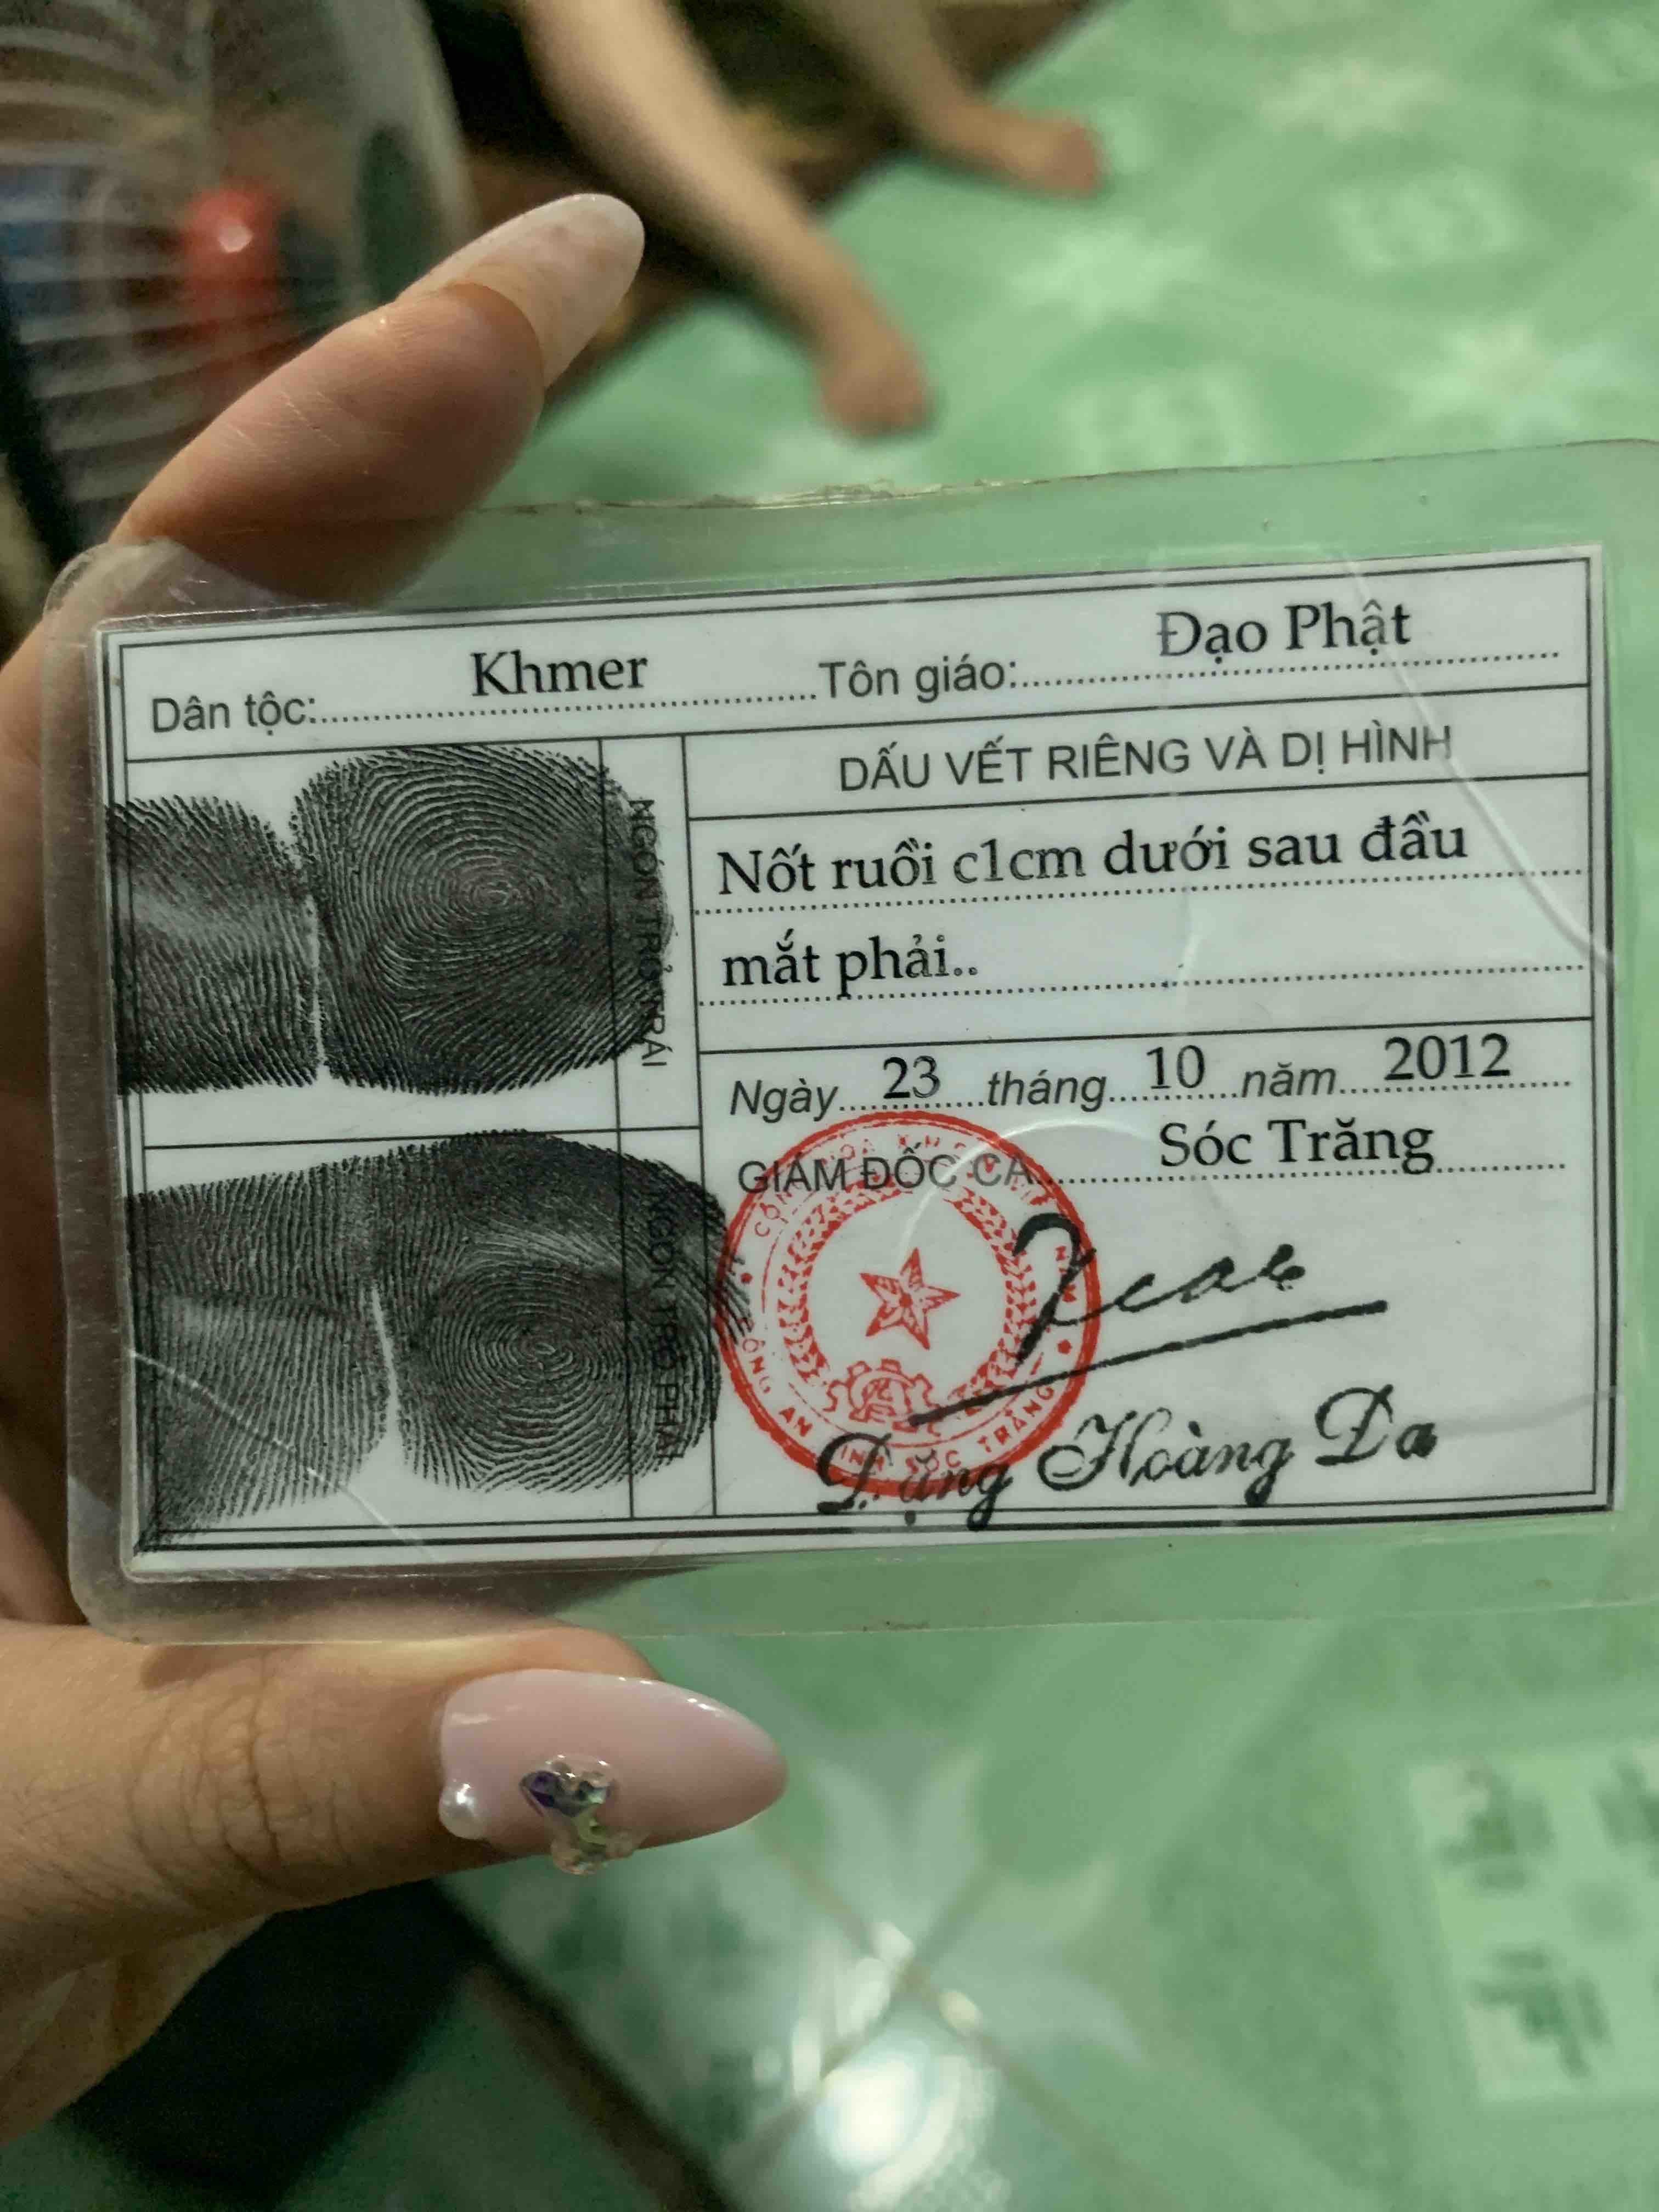 Dân tộc: Khmer Tôn giáo: Đạo Phật
DẤU VẾT RIÊNG VÀ DỊ HÌNH
Nốt ruồi c1cm dưới sau đầu
mắt phải..
NGÓN TRỎ TRÁI
NGÓN TRỎ PHẢI
Ngày 23 tháng 10 năm 2012
GIÁM ĐỐC CA Sóc Trăng
CÔNG AN TỈNH SÓC TRĂNG
Đặng Hoàng Đa